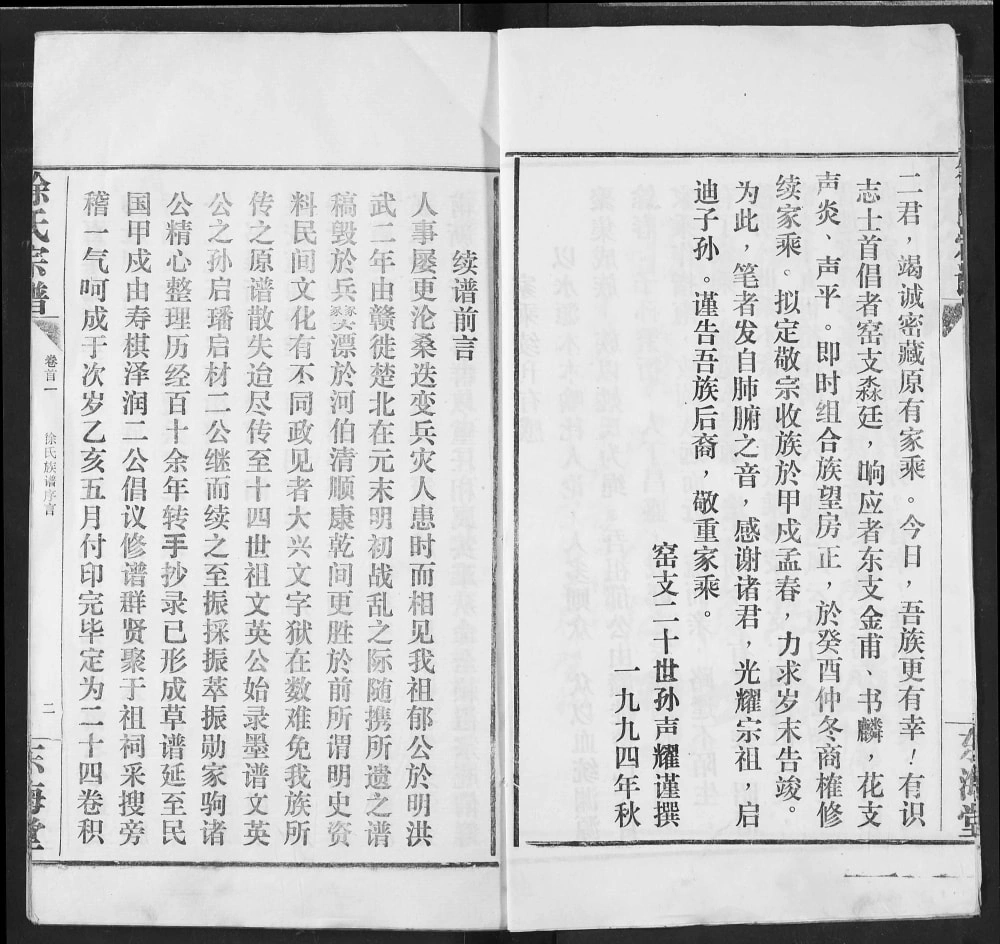 二君，竭诚密藏原有家乘。今日，吾族更有幸！有识
志士首倡者窑支淼廷，响应者东支金甫、书麟，花支
声炎，声平。即时组合族望房正，於癸酉仲冬商榷修
续家乘。拟定敬宗收族於甲戍孟春，力求岁末告竣。
为此，笔者发自肺腑之音，感谢诸君，光耀宗祖，启
迪子孙。谨告吾族后裔，敬重家乘。
窑支二十世孙声耀谨撰
一九九四年秋
续谱前言
人事屡更沦桑迭变兵灾人患时而相见我祖郁公於明洪
武二年由赣徙楚北在元末明初战乱之际随携所遗之谱
稿毁於兵燹漂於河伯清顺康乾间更胜於前所谓明史资
料民间文化有不同政见者大兴文字狱在数难免我族所
传之原谱散失迨尽传至十四世祖文英公始录墨谱文英
公之孙启璠启材二公继而续之至振採振萃振勋家驹诸
公精心整理历经百十余年转手抄录已形成草谱延至民
国甲戍由寿棋泽润二公倡议修谱群贤聚于祖祠采搜旁
稽一气呵成于次岁乙亥五月付印完毕定为二十四卷积
徐氏宗谱
卷首一
徐氏族谱序言
二
东海堂